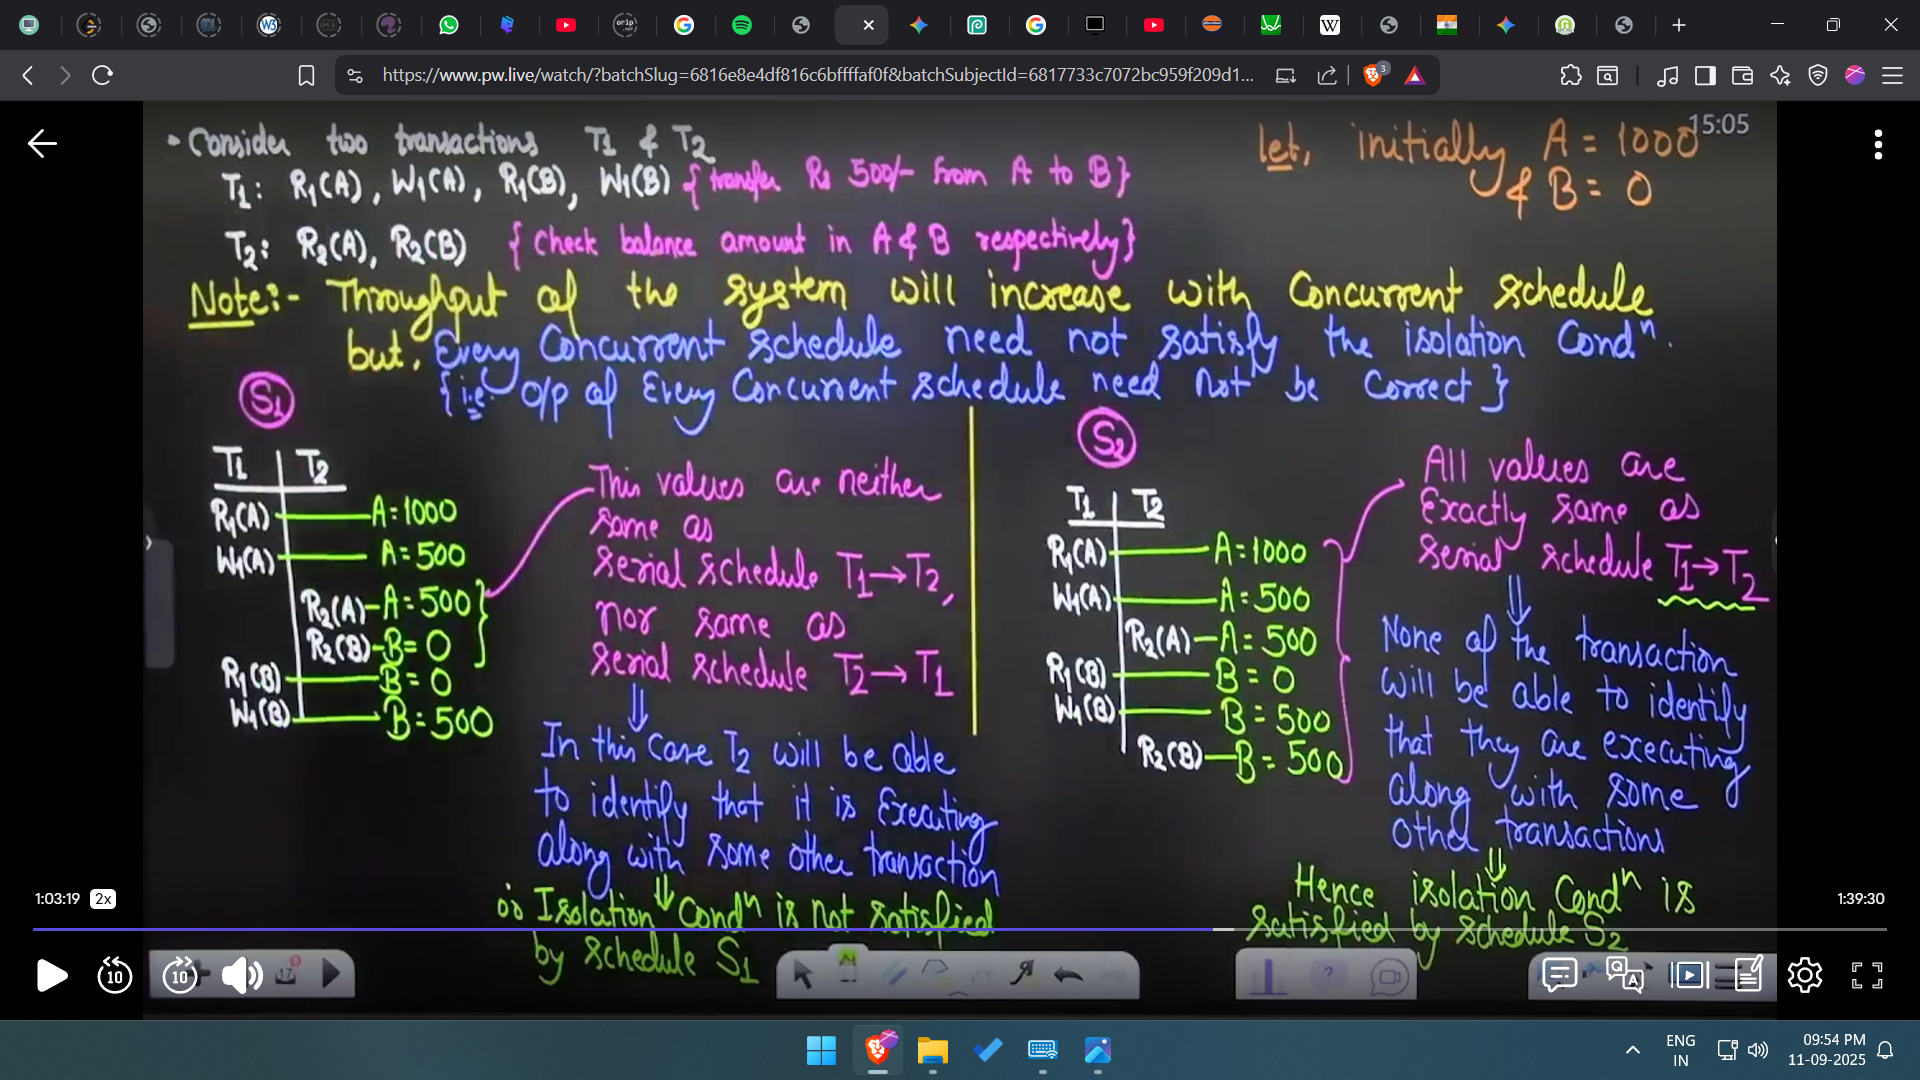 https://www.pw.live/watch/?batchSlug=6816e8e4df816c6bffffaf0f&batchSubjectId=6817733c7072bc959f209d1...
3
15:05
• Consider two transactions T1 & T2
T1: R1(A), W1(A), R1(B), W1(B) {transfer Rs 500/- from A to B}
T2: R2(A), R2(B) {Check balance amount in A & B respectively}
let, initially A = 1000
& B = 0
Note:- Throughput of the system will increase with Concurrent schedule
but, Every Concurrent schedule need not satisfy the isolation Condⁿ.
{i.e. o/p of Every Concurrent schedule need Not be Correct}
S1
T1 T2
R1(A) A=1000
W1(A) A=500
R2(A)-A=500
R2(B)-B=0
R1(B) B=0
W1(B) B=500
This values are neither
same as
serial schedule T1→T2,
nor same as
serial schedule T2→T1
⇓
In this Case T2 will be able
to identify that it is Executing
along with some other transaction
⇓
∴ Isolation Condⁿ is not satisfied
by schedule S1
S2
T1 T2
R1(A) A=1000
W1(A) A=500
R2(A)-A=500
R1(B) B=0
W1(B) B=500
R2(B)-B=500
All values are
Exactly same as
serial schedule T1→T2
⇓
None of the transaction
will be able to identify
that they are executing
along with some
other transactions
⇓
Hence isolation Condⁿ is
satisfied by schedule S2
1:03:19 2x
1:39:30
10 10
17
ENG
IN
09:54 PM
11-09-2025